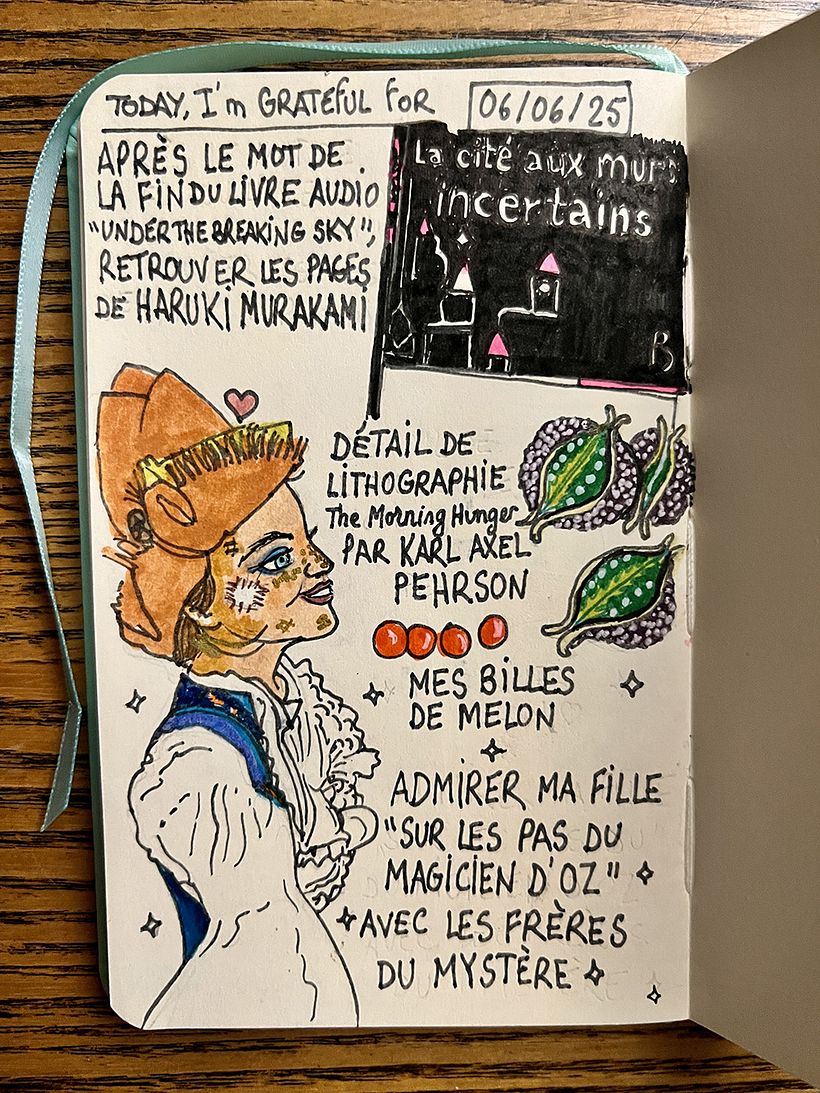 TODAY, I'm GRATEFUL FOR
06/06/25
APRÈS LE MOT DE
LA FIN DU LIVRE AUDIO
"UNDER THE BREAKING SKY",
RETROUVER LES PAGES
DE HARUKI MURAKAMI
La cité aux murs
incertains
B
DÉTAIL DE
LITHOGRAPHIE
The Morning Hunger
PAR KARL AXEL
PEHRSON
MES BILLES
DE MELON
ADMIRER MA FILLE
"SUR LES PAS DU
MAGICIEN D'OZ"
AVEC LES FRÈRES
DU MYSTÈRE